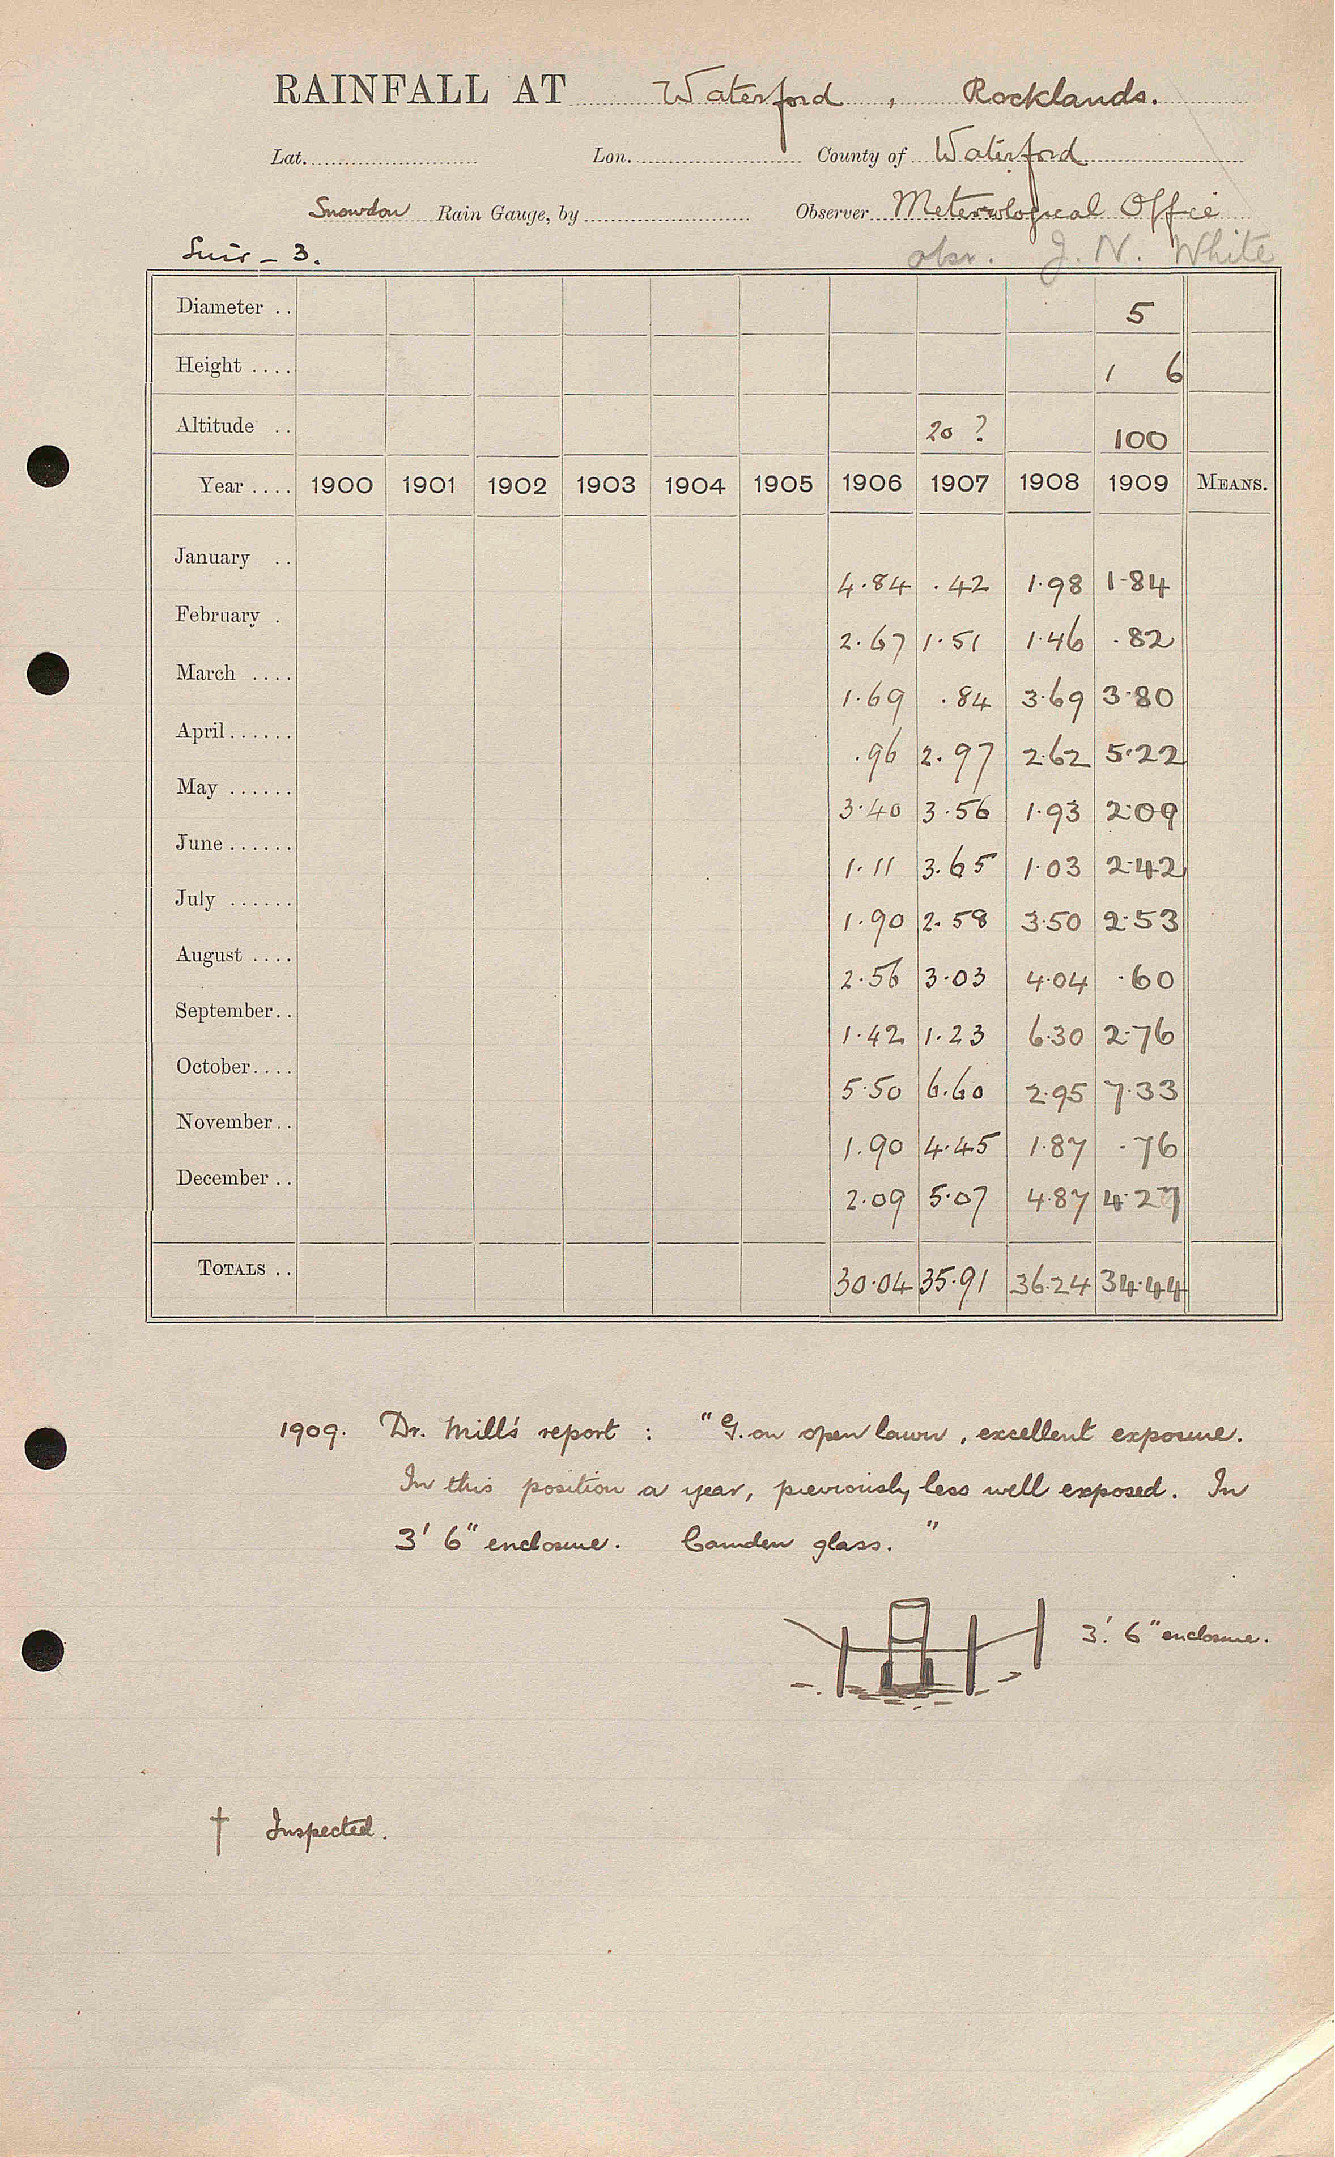 RAINFALL AT Waterford, Rocklands.
Lat. Lon. County of Waterford
Snowdon Rain Gauge, by Observer Meterological Office
Suir - 3. obsr. J. N. White
Diameter .. 5
Height .... 1 6
Altitude .. 20 ? 100
Year .... 1900 1901 1902 1903 1904 1905 1906 1907 1908 1909 MEANS.
January .. 4.84 .42 1.98 1.84
February . 2.67 1.51 1.46 .82
March .... 1.69 .84 3.69 3.80
April...... .96 2.97 2.62 5.22
May ...... 3.40 3.56 1.93 2.09
June...... 1.11 3.65 1.03 2.42
July ...... 1.90 2.58 3.50 2.53
August .... 2.56 3.03 4.04 .60
September.. 1.42 1.23 6.30 2.76
October.... 5.50 6.60 2.95 7.33
November.. 1.90 4.45 1.87 .76
December.. 2.09 5.07 4.87 4.27
TOTALS .. 30.04 35.91 36.24 34.44
1909. Dr. Mill's report : "G. on open lawn, excellent exposure.
In this position a year, previously less well exposed. In
3' 6" enclosure. Camden glass."
3' 6" enclosure.
† Inspected.